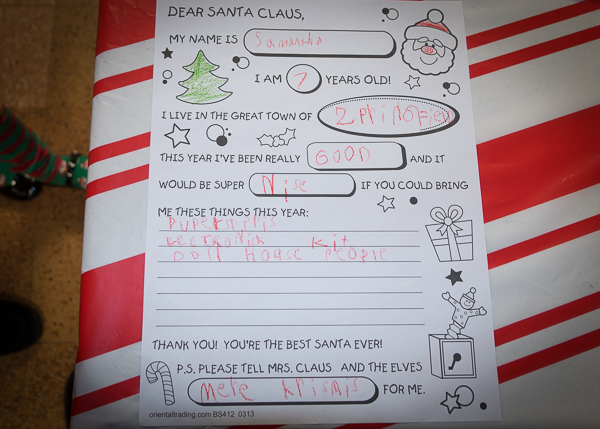 DEAR SANTA CLAUS,
MY NAME IS Samanta
I AM 7 YEARS OLD!
I LIVE IN THE GREAT TOWN OF Zpringfield
THIS YEAR I'VE BEEN REALLY GOOD AND IT
WOULD BE SUPER Nise IF YOU COULD BRING
ME THESE THINGS THIS YEAR:
LECTRONICK KiT
DOll HOUSE PEOPlE
THANK YOU! YOU'RE THE BEST SANTA EVER!
P.S. PLEASE TELL MRS. CLAUS AND THE ELVES
Mere krismis FOR ME.
orientaltrading.com BS412 0313